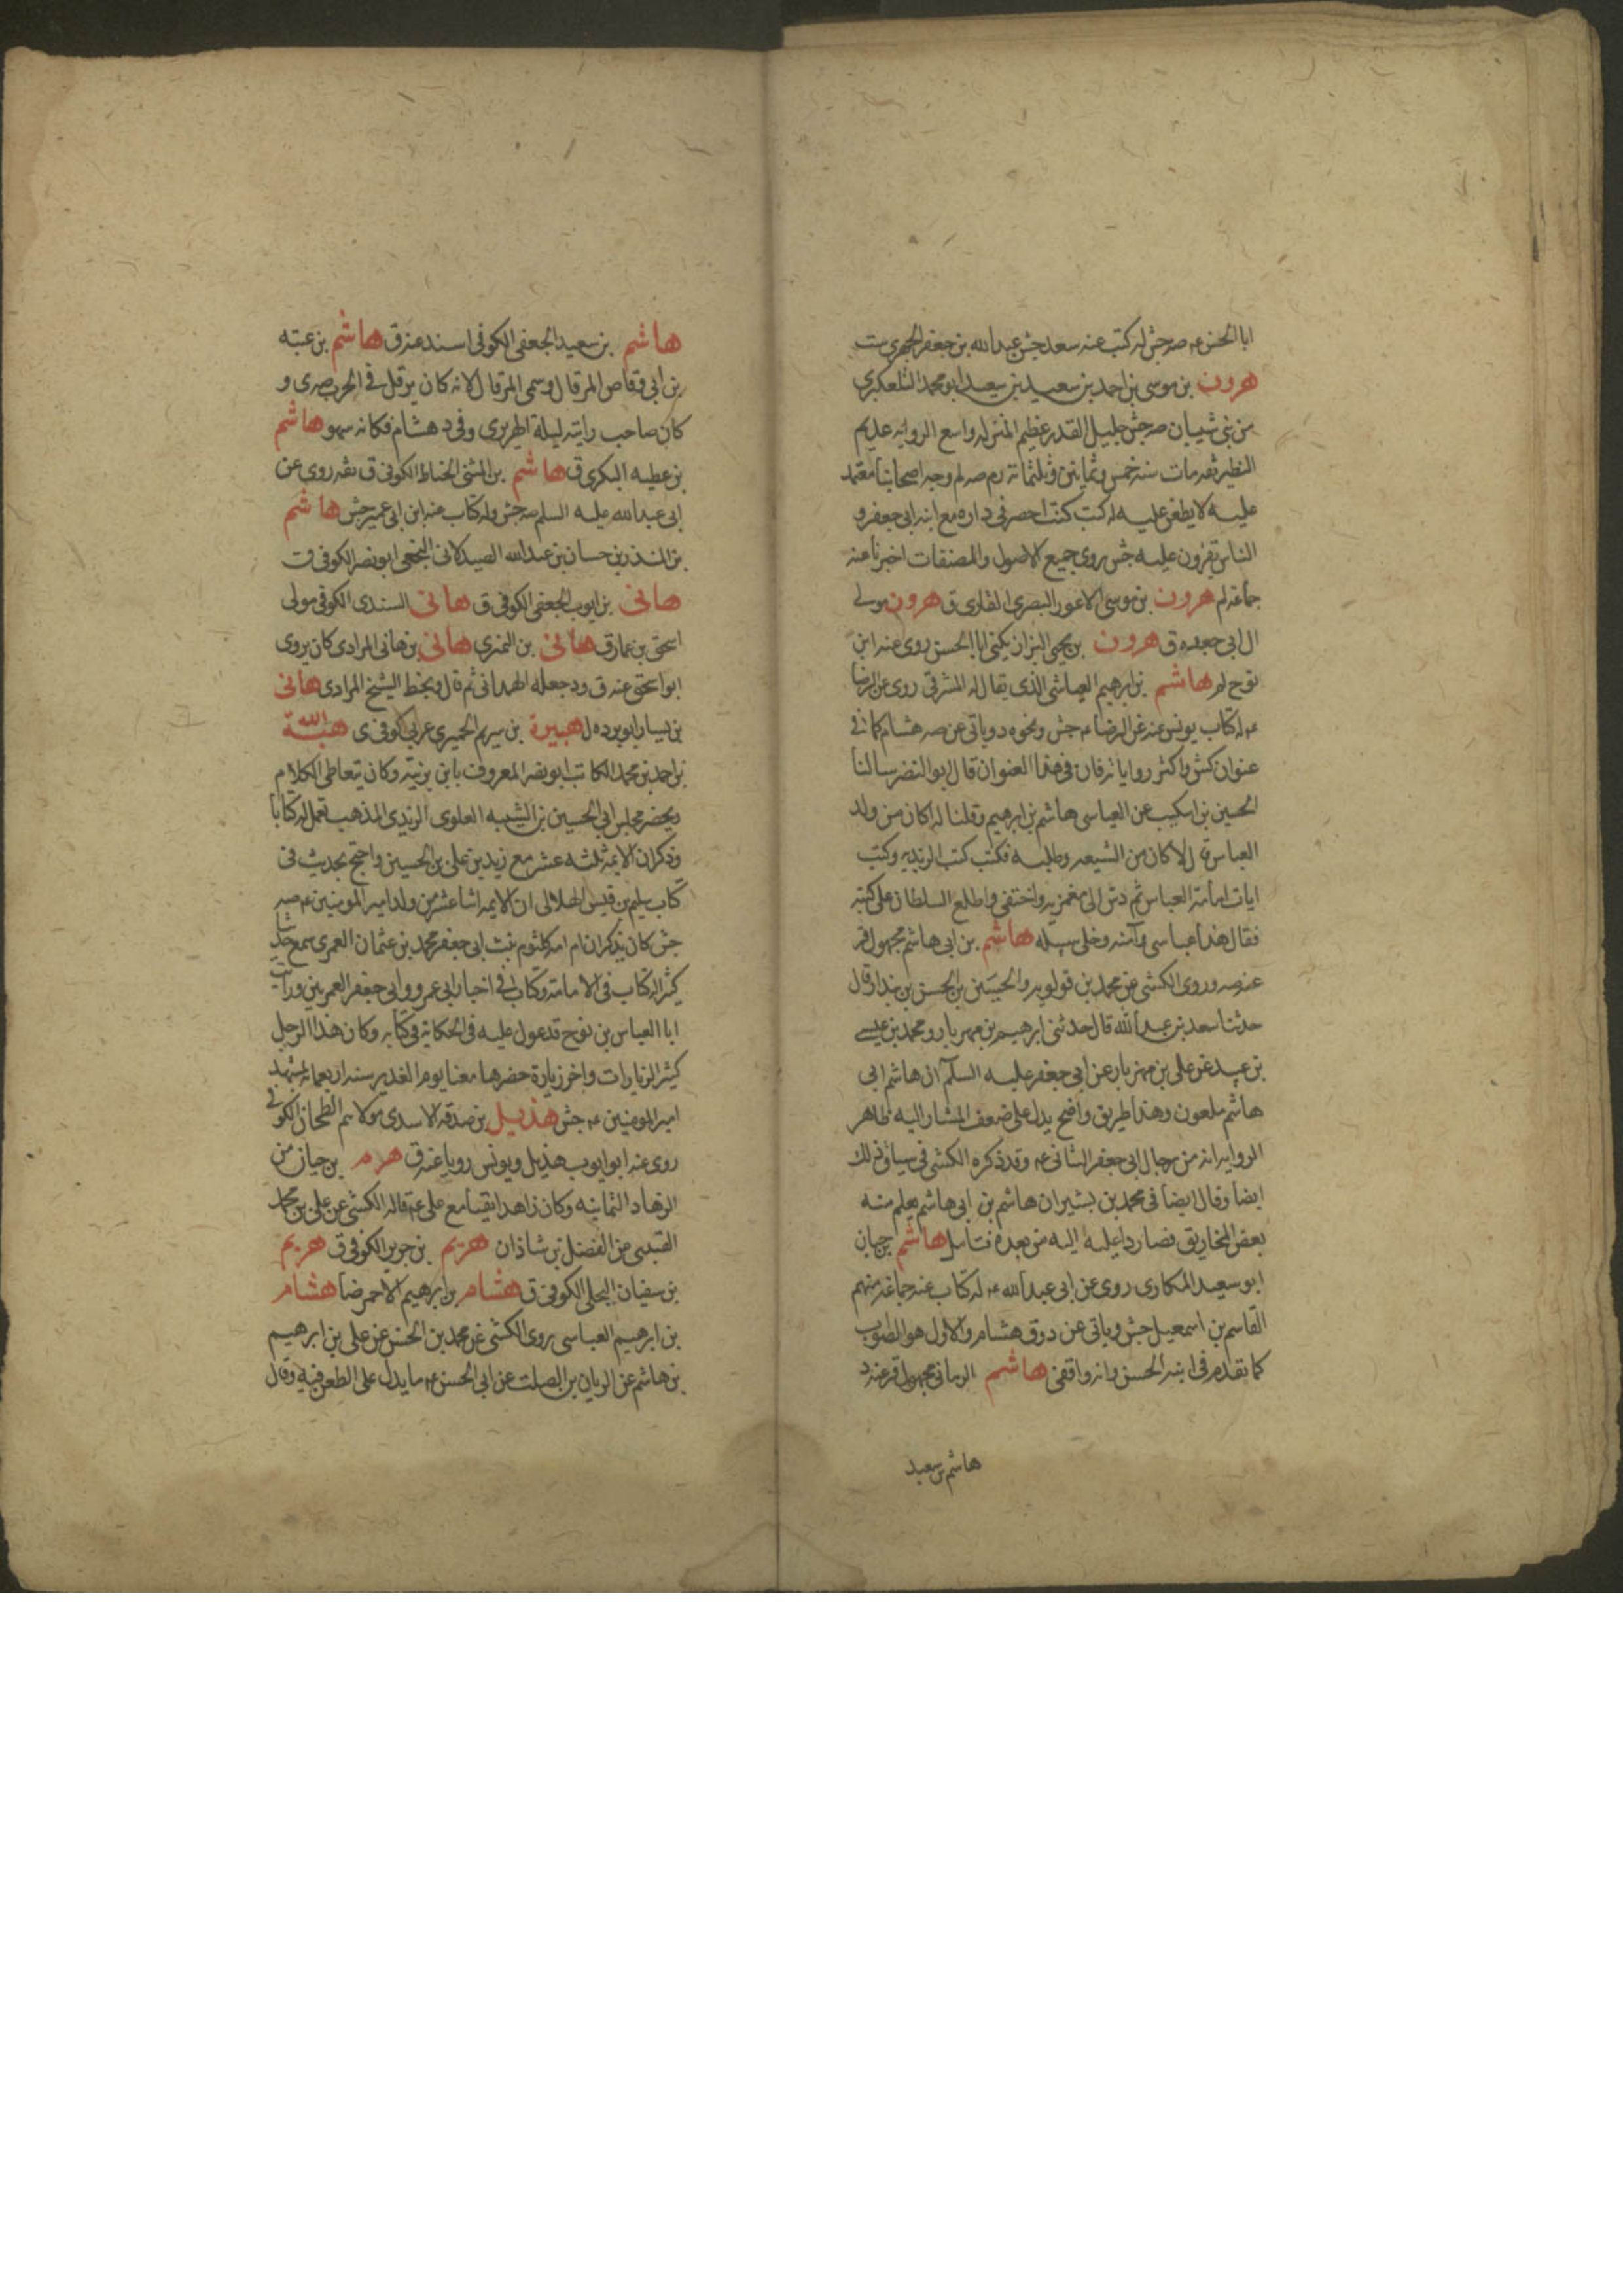 ابا الحسن ع صه جش له كتب عنه سعد جش عبدالله بن جعفر الحميري ست
هرون بن موسى بن احمد بن سعيد بن سعيد ابو محمد التلعكبري
من بني شيبان صه جش جليل القدر عظيم المنزله واسع الروايه عديم
النظير ثقه مات سنه خمس وثمانين وثلثمائة رم صه لم وجه اصحابنا معتمد
عليه لا يطعن عليه له كتب كنت احضر في داره مع ابنه ابي جعفر و
الناس يقرون عليه جش روى جميع الاصول والمصنفات اخبرنا عنه
جماعة لم هرون بن موسى الاعور البصري القاري ق هرون مولى
ال ابي جعده ق هرون بن يحيى البزاز يكنى ابا الحسن روى عنه ابن
نوح لم هاشم بن ابرهيم العباسي الذي يقال له المشرقي روى عن الرضا
ع له كتاب يونس عنه عن الرضا ع جش ونحوه د وياتي عن صه هشام كما في
عنوان كش واكثر رواياته فان في هذا العنوان قال ابو النضر سالنا
الحسين بن اسكيب عن العباسي هاشم بن ابرهيم وقلنا له اكان من ولد
العباس قال لا كان من الشيعه وطلبه فكتب كتب الزيديه وكتب
ايات امامة العباس ثم دس الى مغمز به واختفى واطلع السلطان على كتبه
فقال هذا عباسي فآمنه وخلى سبيله هاشم بن ابي هاشم مجهول قر
عنه صه وروى الكشي عن محمد بن قولويه والحسين بن الحسن بن بندار قال
حدثنا سعد بن عبدالله قال حدثني ابرهيم بن مهزيار ومحمد بن عيسى
بن عبيد عن علي بن مهزيار عن ابي جعفر عليه السلم ان هاشم ابي
هاشم ملعون وهذا طريق واضح يدل على ضعف المشار اليه ظاهر
الروايه انه من رجال ابي جعفر الثاني ع وقد ذكره الكشي في سياق ذلك
ايضا وقال ايضا في محمد بن بشير ان هاشم بن ابي هاشم يعلم منه
بعض المخاريق فصار داعيه اليه من بعده فتامل هاشم بن حيان
ابو سعيد المكاري روى عن ابي عبدالله ع له كتاب عنه جماعة منهم
القاسم بن اسمعيل جش وياتي عن د وق هشام والاول هو الصواب
كما تقدم في ابنه الحسن وانه واقفي هاشم الرماني مجهول قر عنه د
هاشم بن سعيد
هاشم بن سعيد الجعفي الكوفي اسند عنه ق هاشم بن عتبه
بن ابي وقاص المرقال وسمى المرقال لانه كان يرقل في الحرب صه ى و
كان صاحب رايته ليلة الهرير ى وفي د هشام فكانه سهو هاشم
بن عطيه البكري ق هاشم بن المثنى الحناط الكوفي ق ثقه روى عن
ابي عبدالله عليه السلم صه جش وله كتاب عنه ابن ابي عمير جش هاشم
بن المنذر بن حسان بن عبدالله الصيدلاني النخعي ابو نصر الكوفي ق
هاني بن ايوب الجعفي الكوفي ق هاني السندي الكوفي مولى
اسحق بن عمار ق هاني بن النمري هاني بن هاني المرادي كان يروى
ابو اسحق عنه ق ود جعله الهمداني ثم قال وبخط الشيخ المرادي هاني
بن يسار ابو برده ل هبيرة بن سريم الحميري عربي كوفي ى هبة الله
بن احمد بن محمد الكاتب ابو نصر المعروف بابن برنيه وكان يتعاطى الكلام
ويحضر مجلس ابي الحسين بن الشبيه العلوي الزيدي المذهب فعمل له كتابا
وذكر ان الايمه ثلثه عشر مع زيد بن علي بن الحسين واحتج بحديث في
كتاب سليم بن قيس الهلالي ان الايمه اثنا عشر من ولد امير المومنين ع صه
جش كان يذكر ان ام امه كلثوم بنت ابي جعفر محمد بن عثمان العمري سمع حديثا
كثيرا له كتاب في الامامة وكتاب في اخبار ابي عمرو وابي جعفر العمريين ورايت
ابا العباس بن نوح قد عول عليه في الحكاية في كتابه وكان هذا الرجل
كثير الزيارات واخر زيارة حضرها معنا يوم الغدير سنه اربعمائة بمشهد
امير المومنين ع جش هذيل بن صدقه الاسدي مولاهم الطحان الكوفي
روى عنه ابو ايوب هذيل ويونس رويا عنه ق هرم بن حيان من
الزهاد الثمانيه وكان زاهدا تقيا مع علي ع قاله الكشي عن علي بن محمد
القتيبي عن الفضل بن شاذان هريم بن جرير الكوفي ق هريم
بن سفيان البجلي الكوفي ق هشام بن ابرهيم الاحمر ضا هشام
بن ابرهيم العباسي روى الكشي عن محمد بن الحسن عن علي بن ابرهيم
بن هاشم عن الريان بن الصلت عن ابي الحسن ع ما يدل على الطعن فيه وقال